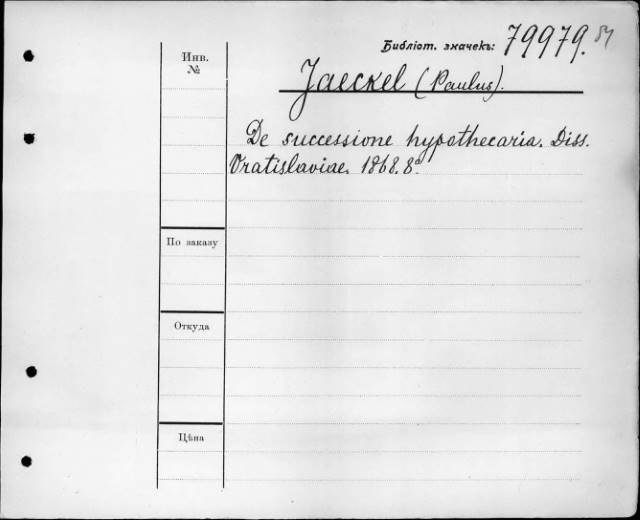 Библіот. значекъ: 79979.
Инв.
№
Jaeckel (Paulus).
De successione hypothecaria. Diss.
Vratislaviae. 1868. 8°.
По заказу
Откуда
Цѣна